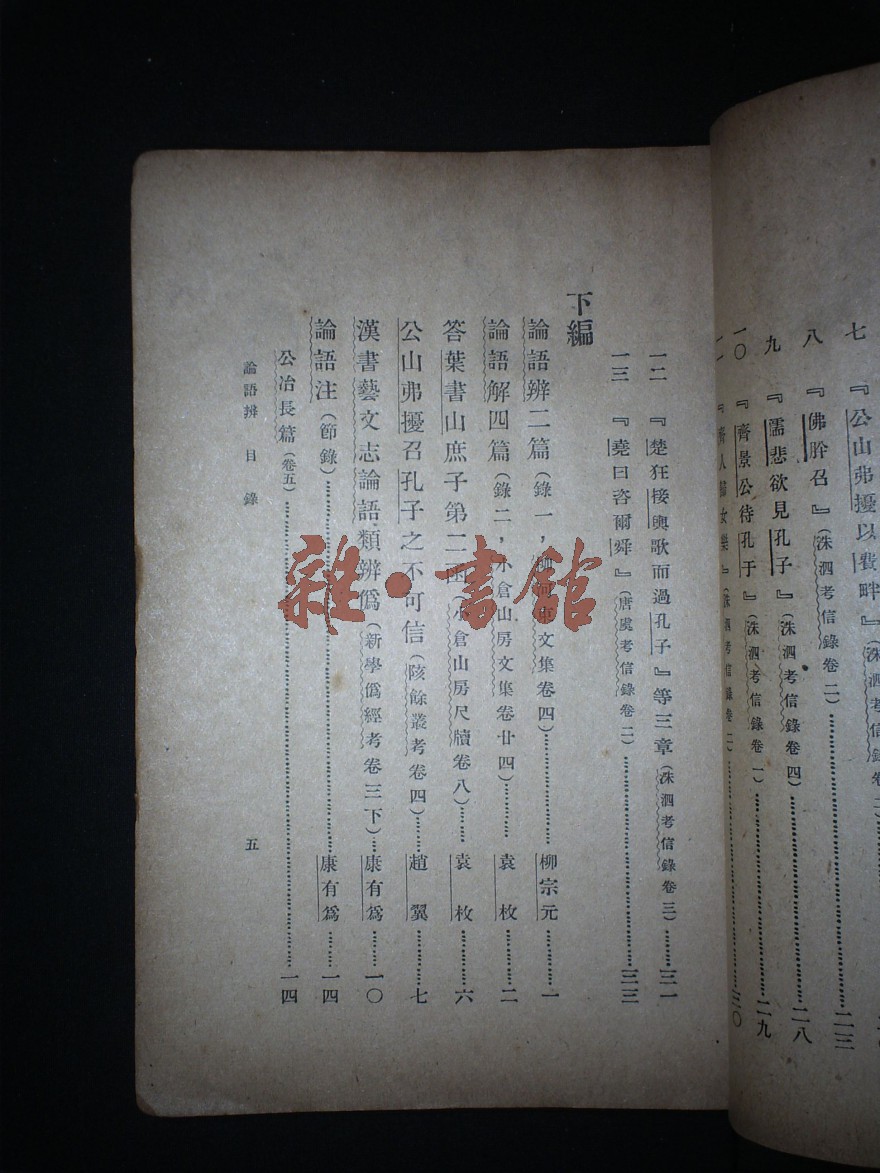 七 『公山弗擾以費畔』（洙泗考信錄卷二）
八 『佛肸召』（洙泗考信錄卷二）……二三
九 『孺悲欲見孔子』（洙泗考信錄卷四）……二八
一〇 『齊景公待孔子』（洙泗考信錄卷一）……二九
一一 『齊人歸女樂』（洙泗考信錄卷二）……三〇
一二 『楚狂接輿歌而過孔子』等三章（洙泗考信錄卷三）……三一
一三 『堯曰咨爾舜』（唐虞考信錄卷二）……三三
下編
論語辨二篇（錄一，柳河東文集卷四）……柳宗元……一
論語解四篇（錄二，小倉山房文集卷廿四）……袁枚……二
答葉書山庶子第二函（小倉山房尺牘卷八）……袁枚……六
公山弗擾召孔子之不可信（陔餘叢考卷四）……趙翼……七
漢書藝文志論語類辨僞（新學僞經考卷三下）……康有爲……一〇
論語注（節錄）……康有爲……一四
公冶長篇（卷五）……一四
論語辨 目錄 五
雜·書館